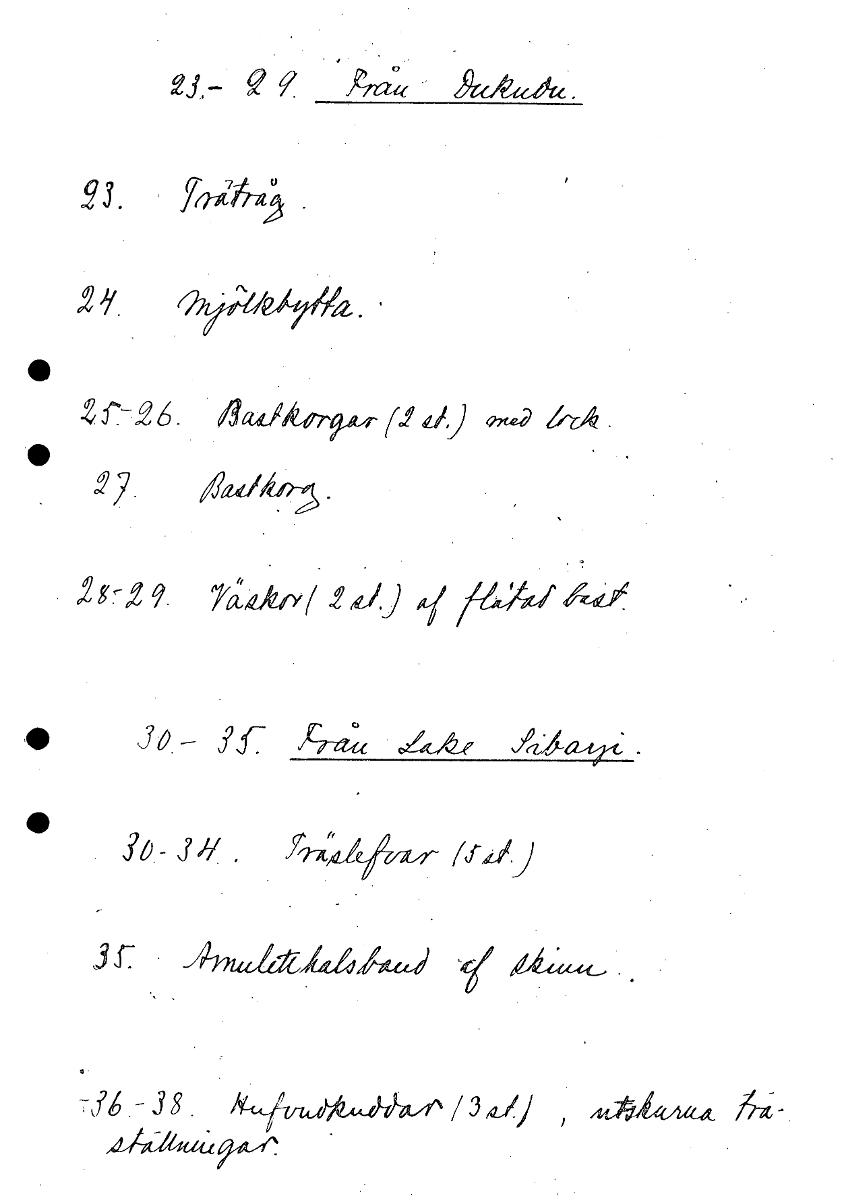 23.- 29. Från Dukudu.
23. Tråtråg.
24. Mjölkbytta.
25-26. Bastkorgar (2 st.) med lock.
27. Bastkorg.
28-29. Väskor (2 st.) af flätad bast.
30.- 35. Från Lake Sibayi.
30-34. Träslefvar (5 st.)
35. Amuletthalsband af skinn.
36-38. Hufvudkuddar (3 st.), utskurna trä-
ställningar.